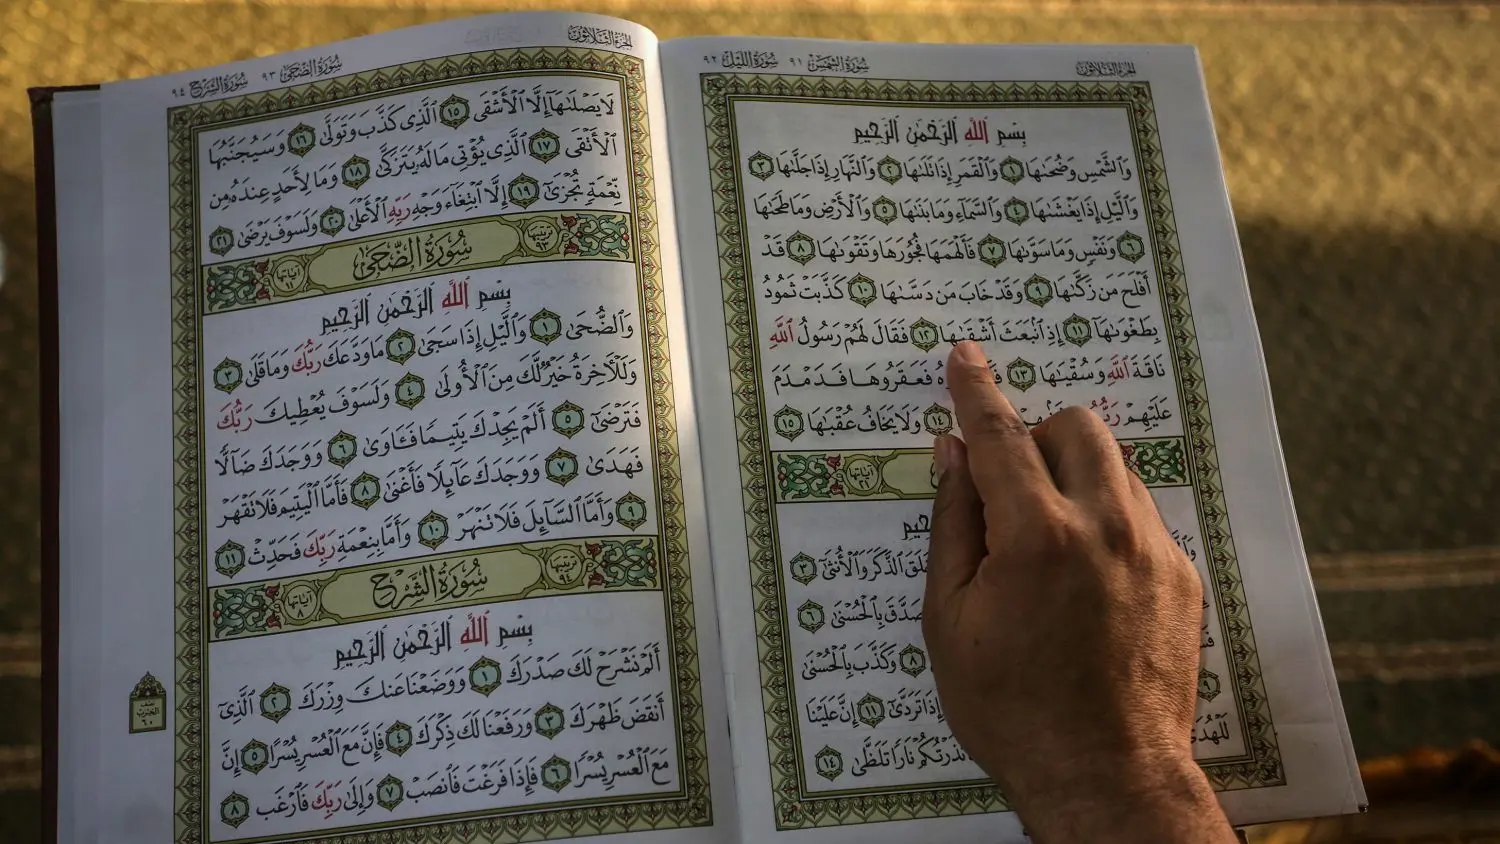 الجزء الثلاثون
سورة الشمس ٩١
سورة الليل ٩٢
بِسْمِ ٱللَّهِ ٱلرَّحْمَٰنِ ٱلرَّحِيمِ
وَٱلشَّمْسِ وَضُحَىٰهَا ١ وَٱلْقَمَرِ إِذَا تَلَىٰهَا ٢ وَٱلنَّهَارِ إِذَا جَلَّىٰهَا ٣
وَٱلَّيْلِ إِذَا يَغْشَىٰهَا ٤ وَٱلسَّمَآءِ وَمَا بَنَىٰهَا ٥ وَٱلْأَرْضِ وَمَا طَحَىٰهَا
٦ وَنَفْسٍ وَمَا سَوَّىٰهَا ٧ فَأَلْهَمَهَا فُجُورَهَا وَتَقْوَىٰهَا ٨ قَدْ
أَفْلَحَ مَن زَكَّىٰهَا ٩ وَقَدْ خَابَ مَن دَسَّىٰهَا ١٠ كَذَّبَتْ ثَمُودُ
بِطَغْوَىٰهَآ ١١ إِذِ ٱنۢبَعَثَ أَشْقَىٰهَا ١٢ فَقَالَ لَهُمْ رَسُولُ ٱللَّهِ
نَاقَةَ ٱللَّهِ وَسُقْيَٰهَا ١٣ فَعَقَرُوهَا فَدَمْدَمَ
عَلَيْهِمْ رَبُّهُم ١٤ وَلَا يَخَافُ عُقْبَٰهَا ١٥
آياتها ٢١
بِسْمِ
خَلَقَ ٱلذَّكَرَ وَٱلْأُنثَىٰٓ ٣
وَصَدَّقَ بِٱلْحُسْنَىٰ ٦
٨ وَكَذَّبَ بِٱلْحُسْنَىٰ
٩
إِذَا تَرَدَّىٰٓ ١١ إِنَّ عَلَيْنَا
لَلْهُدَىٰ
فَأَنذَرْتُكُمْ نَارًا تَلَظَّىٰ ١٤
الجزء الثلاثون
سورة الضحى ٩٣
سورة الشرح ٩٤
لَا يَصْلَىٰهَآ إِلَّا ٱلْأَشْقَى ١٥ ٱلَّذِى كَذَّبَ وَتَوَلَّىٰ ١٦ وَسَيُجَنَّبُهَا
ٱلْأَتْقَى ١٧ ٱلَّذِى يُؤْتِى مَالَهُۥ يَتَزَكَّىٰ ١٨ وَمَا لِأَحَدٍ عِندَهُۥ مِن
نِّعْمَةٍ تُجْزَىٰٓ ١٩ إِلَّا ٱبْتِغَآءَ وَجْهِ رَبِّهِ ٱلْأَعْلَىٰ ٢٠ وَلَسَوْفَ يَرْضَىٰ ٢١
ترتيبها ٩٣ سُورَةُ الضُّحَىٰ آياتها ١١
بِسْمِ ٱللَّهِ ٱلرَّحْمَٰنِ ٱلرَّحِيمِ
وَٱلضُّحَىٰ ١ وَٱلَّيْلِ إِذَا سَجَىٰ ٢ مَا وَدَّعَكَ رَبُّكَ وَمَا قَلَىٰ ٣
وَلَلْأَخِرَةُ خَيْرٌ لَّكَ مِنَ ٱلْأُولَىٰ ٤ وَلَسَوْفَ يُعْطِيكَ رَبُّكَ
فَتَرْضَىٰٓ ٥ أَلَمْ يَجِدْكَ يَتِيمًا فَـَٔاوَىٰ ٦ وَوَجَدَكَ ضَآلًّا
فَهَدَىٰ ٧ وَوَجَدَكَ عَآئِلًا فَأَغْنَىٰ ٨ فَأَمَّا ٱلْيَتِيمَ فَلَا تَقْهَرْ
٩ وَأَمَّا ٱلسَّآئِلَ فَلَا تَنْهَرْ ١٠ وَأَمَّا بِنِعْمَةِ رَبِّكَ فَحَدِّثْ ١١
ترتيبها ٩٤ سُورَةُ الشَّرْحِ آياتها ٨
بِسْمِ ٱللَّهِ ٱلرَّحْمَٰنِ ٱلرَّحِيمِ
أَلَمْ نَشْرَحْ لَكَ صَدْرَكَ ١ وَوَضَعْنَا عَنكَ وِزْرَكَ ٢ ٱلَّذِىٓ
أَنقَضَ ظَهْرَكَ ٣ وَرَفَعْنَا لَكَ ذِكْرَكَ ٤ فَإِنَّ مَعَ ٱلْعُسْرِ يُسْرًا ٥ إِنَّ
مَعَ ٱلْعُسْرِ يُسْرًا ٦ فَإِذَا فَرَغْتَ فَٱنصَبْ ٧ وَإِلَىٰ رَبِّكَ فَٱرْغَب ٨
نصف
الحزب
٦٠